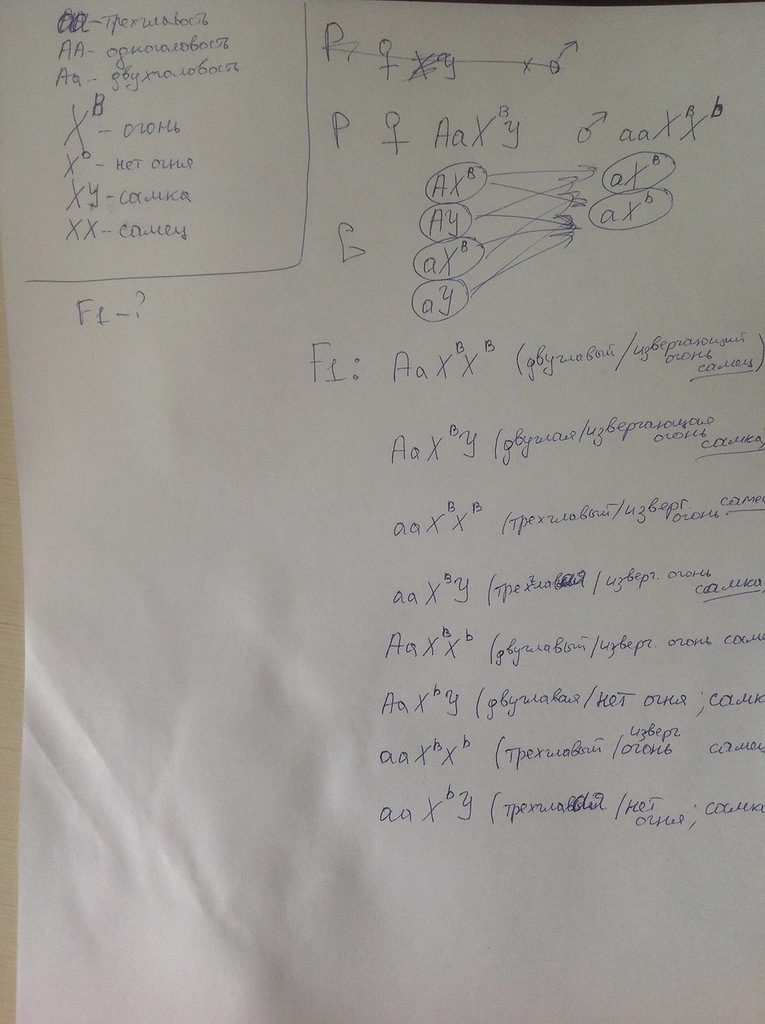 aa - трехглавость
AA - одноголовость
Aa - двухголовость
X^B - огонь
X^b - нет огня
XY - самка
XX - самец
F1 - ?
P, ♀ XY x ♂
P ♀ AaX^BY ♂ aaX^BX^b
G
AX^B
AY
aX^B
aY
aX^B
aX^b
F1: AaX^BX^B (двуглавый/извергающий огонь самец)
AaX^BY (двуглая/извергающая огонь самка)
aaX^BX^B (трехглавый/изверг огонь самец
aaX^BY (трехглавая/изверг. огонь самка
AaX^BX^b (двуглавый/изверг. огонь саме
AaX^bY (двуглавая/нет огня; самк
aaX^BX^b (трехглавый/изверг огонь самец
aaX^bY (трехглавая/нет огня; самка